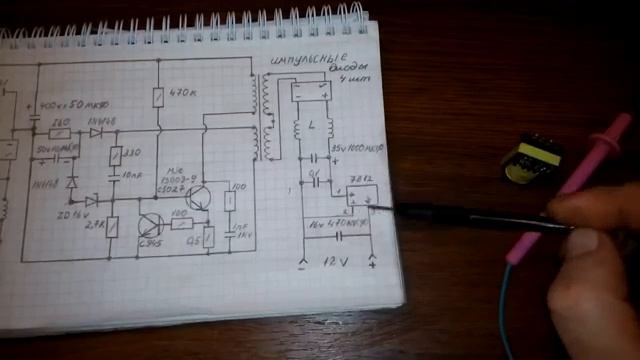 ИМПУЛЬСНЫЕ
ДИОДЫ
4 шт
470к
400v 50мкф
260
1N4148
330
50v10мкф
10nF
L
35v 1000мкф
0,1
1N4148
ZD 16v
Mje
13009-9
7812
1
2
100
100
2,7k
C945
0,5
1nF
1kv
16v 470мкф
12V
-
+